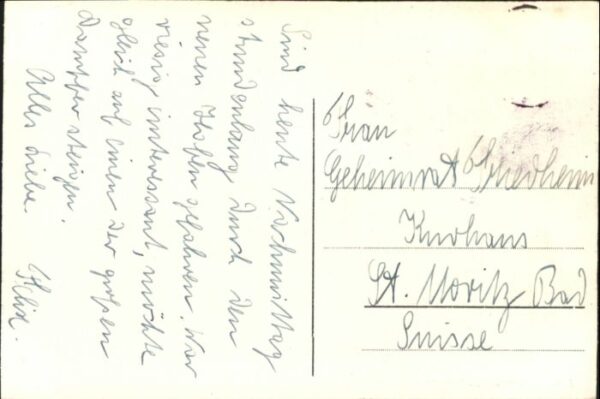 Sind heute Nachmittag
stundenlang durch den
neuen Hafen gefahren. War
riesig interessant, möchte
gleich auf einen der großen
Dampfer steigen.
Alles Liebe
Frau
Geheimrat Friedheim
Kurhaus
St. Moritz Bad
Suisse